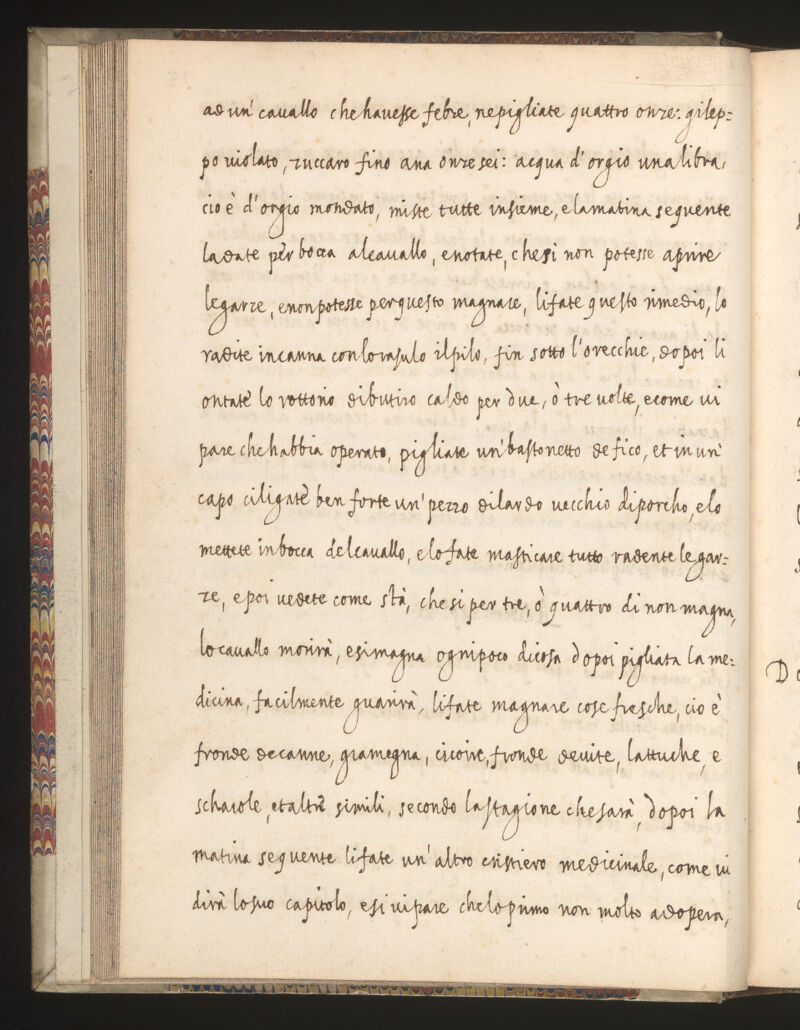 ad un' cauallo che hauesse febre, ne pigliate quattro onze: gilep:
po uiolato, zuccaro fino ana onze sei: acqua d'orgio una libra,
cio è d'orgio mondato, miste tutte insieme, e la matina sequente
la date per bocca al cauallo, e notate, che si non potesse aprire
le garze, e non potesse per questo magnare, li fate questo rimedio, lo
radite in canna con lo rasulo il pilo, fin sotto l'orecchie, dopoi li
ontate lo rottorio di butiro caldo per due, ò tre uolte, e come ui
pare che habbia operato, pigliate un' bastonetto de fico, et in un'
capo ci ligate ben forte un' pezzo di lardo uecchio di porcho, e lo
mettete in bocca del cauallo, e lo fate masticare tutto radente le gar:
ze, e poi uedete come stà, che si per tre, ò quattro di non magna,
lo cauallo morirà, e si magna ogni poco di cosa dopoi pigliata la me:
dicina, facilmente guarirà, li fate magnare cose fresche, cio è
fronde de canne, gramegna, cicoire, fronde de uite, lattuche, e
scharole, et altre simili, secondo la stagione che sarà, dopoi la
matina sequente li fate un' altro cristiero medicinale, come ui
dirà lo suo capitolo, e si ui pare che lo primo non molto adopera,